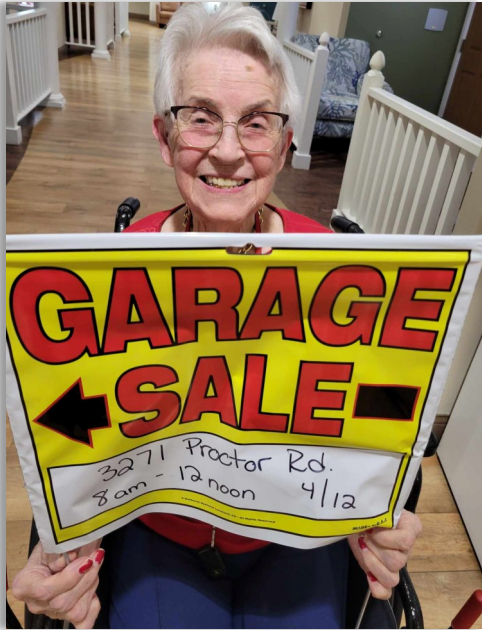 GARAGE
SALE
3271 Proctor Rd.
8am - 12 noon 4/12